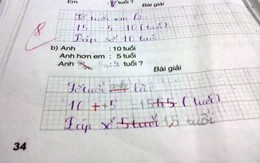 Em : ? tuổi ?
Bài giải
Số tuổi em là:
15 - 5 = 10 (tuổi)
Đáp số 10 tuổi
8
b) Anh : 10 tuổi
Anh hơn em : 5 tuổi
Anh : ? tuổi ?
Bài giải
Số tuổi anh là:
10 + 5 = 15 (tuổi)
Đáp số 15 tuổi
34